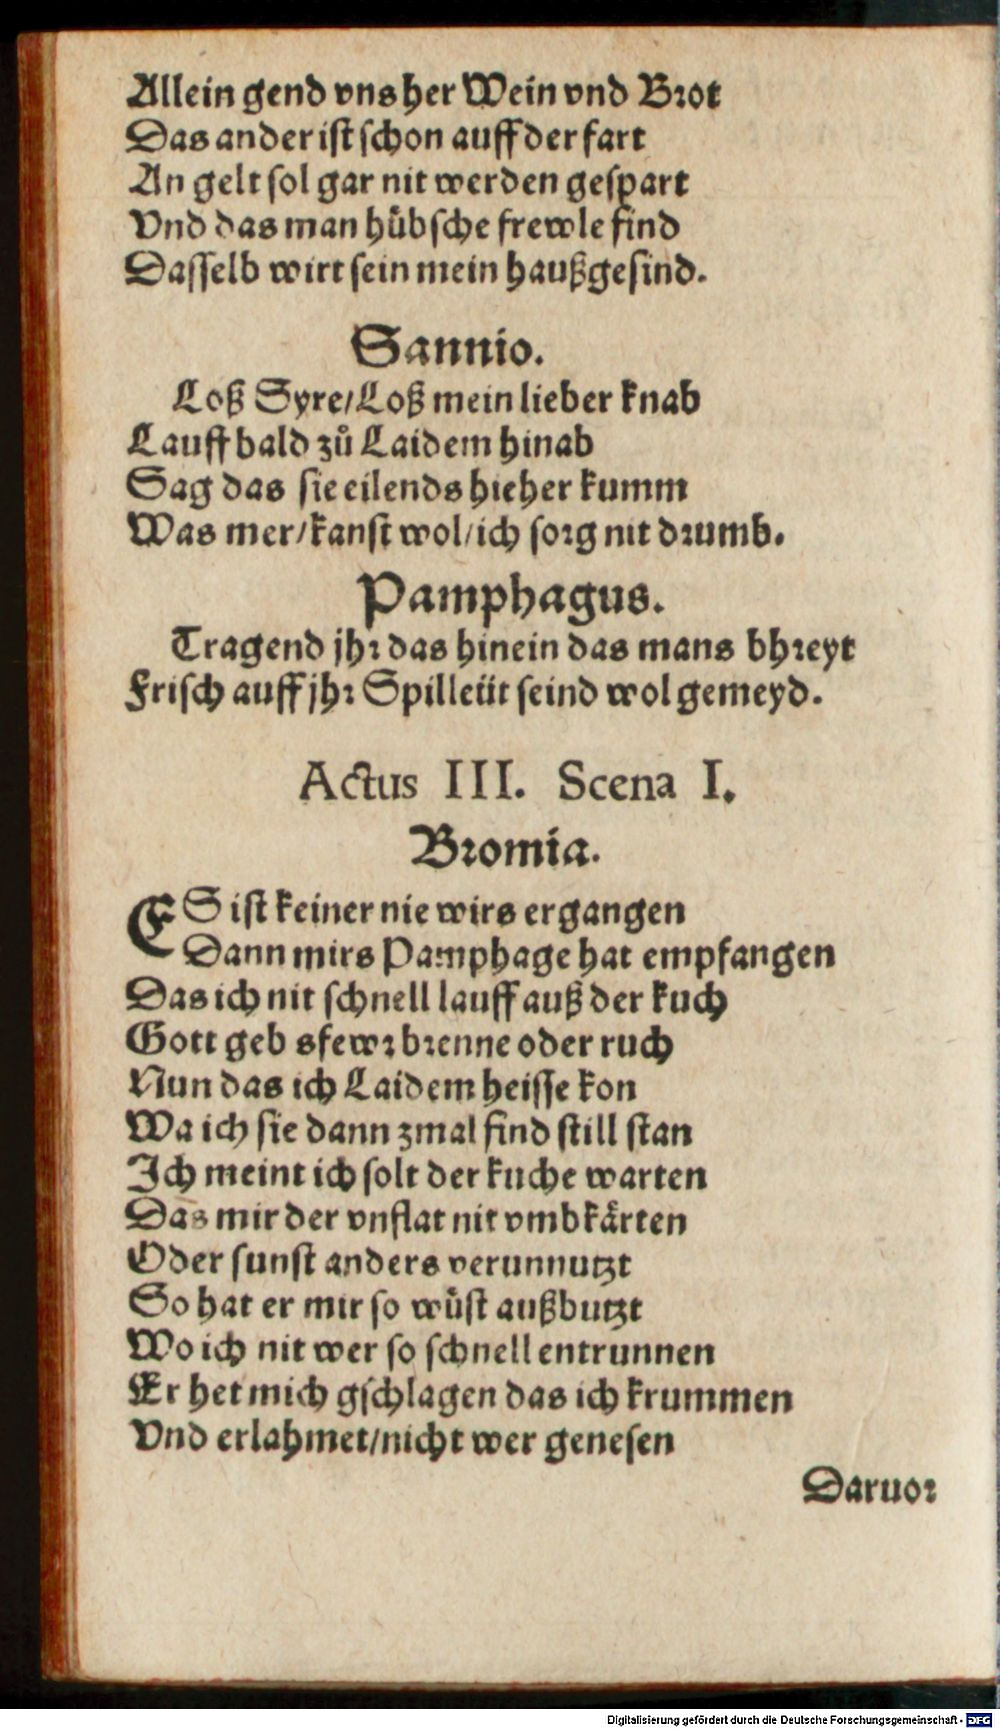 Allein gend vns her Wein vnd Brot
Das ander ist schon auff der fart
An gelt sol gar nit werden gespart
Vnd das man hübsche frewle find
Dasselb wirt sein mein haußgesind.
Sannio.
Loß Syre/Loß mein lieber knab
Lauff bald zů Laidem hinab
Sag das sie eilends hieher kumm
Was mer/kanst wol/ich sorg nit drumb.
Pamphagus.
Tragend jhr das hinein das mans bhreyt
Frisch auff jhr Spilleüt seind wol gemeyd.
Actus III. Scena I.
Bromia.
ES ist keiner nie wirs ergangen
Dann mirs Pamphage hat empfangen
Das ich nit schnell lauff auß der kuch
Gott geb sfewr brenne oder ruch
Nun das ich Laidem heisse kon
Wa ich sie dann zmal find still stan
Ich meint ich solt der kuche warten
Das mir der vnflat nit vmbkårten
Oder sunst anders verunnutzt
So hat er mir so wüst außbutzt
Wo ich nit wer so schnell entrunnen
Er het mich gschlagen das ich krummen
Vnd erlahmet/nicht wer genesen
Daruor
Digitalisierung gefördert durch die Deutsche Forschungsgemeinschaft - DFG